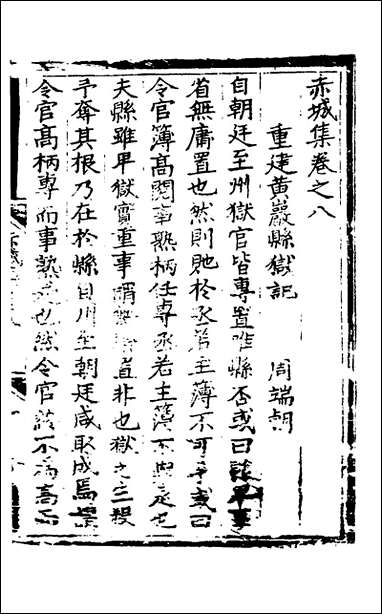 赤城集卷之八
重建黄巖縣獄記 周端朝
自朝廷至州獄官皆專置唯縣否或曰諉早事
省無庸置也然則貤於丞若主簿不可乎或曰
令官簿高閱事熟柄任專丞若主簿不與是也
夫縣雖卑獄實重事謂無省者非也獄之三殺
予奪其根乃在於縣自州至朝廷咸取成焉
令官高柄專而事熟是也然令官誠不爲高